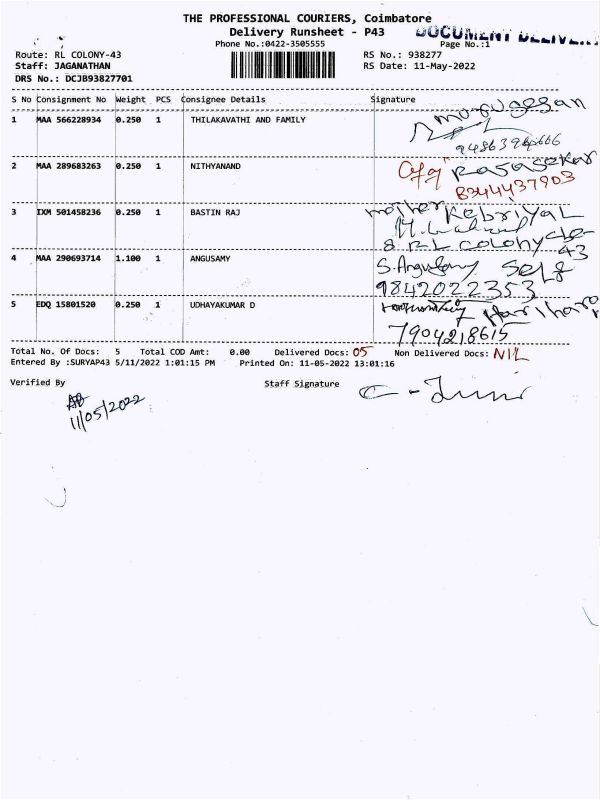 THE PROFESSIONAL COURIERS, Coimbatore
Delivery Runsheet - P43
DOCUMENT DELIVER
Phone No.:0422-3505555
Page No.:1
Route: RL COLONY-43
RS No.: 938277
Staff: JAGANATHAN
RS Date: 11-May-2022
DRS No.: DCJB93827701
S No Consignment No Weight PCS Consignee Details Signature
1 MAA 566228934 0.250 1 THILAKAVATHI AND FAMILY murugesan
2 MAA 289683263 0.250 1 NITHYANAND Rasasekar
8344437903
3 IXM 501458236 0.250 1 BASTIN RAJ mother Kebriyal
8 RL colony
43
4 MAA 290693714 1.100 1 ANGUSAMY S. Angusamy Self
9842022353
5 EDQ 15801520 0.250 1 UDHAYAKUMAR D Hariharan
7904218615
Total No. Of Docs: 5 Total COD Amt: 0.00 Delivered Docs: 05 Non Delivered Docs: NIL
Entered By :SURYAP43 5/11/2022 1:01:15 PM Printed On: 11-05-2022 13:01:16
Verified By Staff Signature
11/05/2022